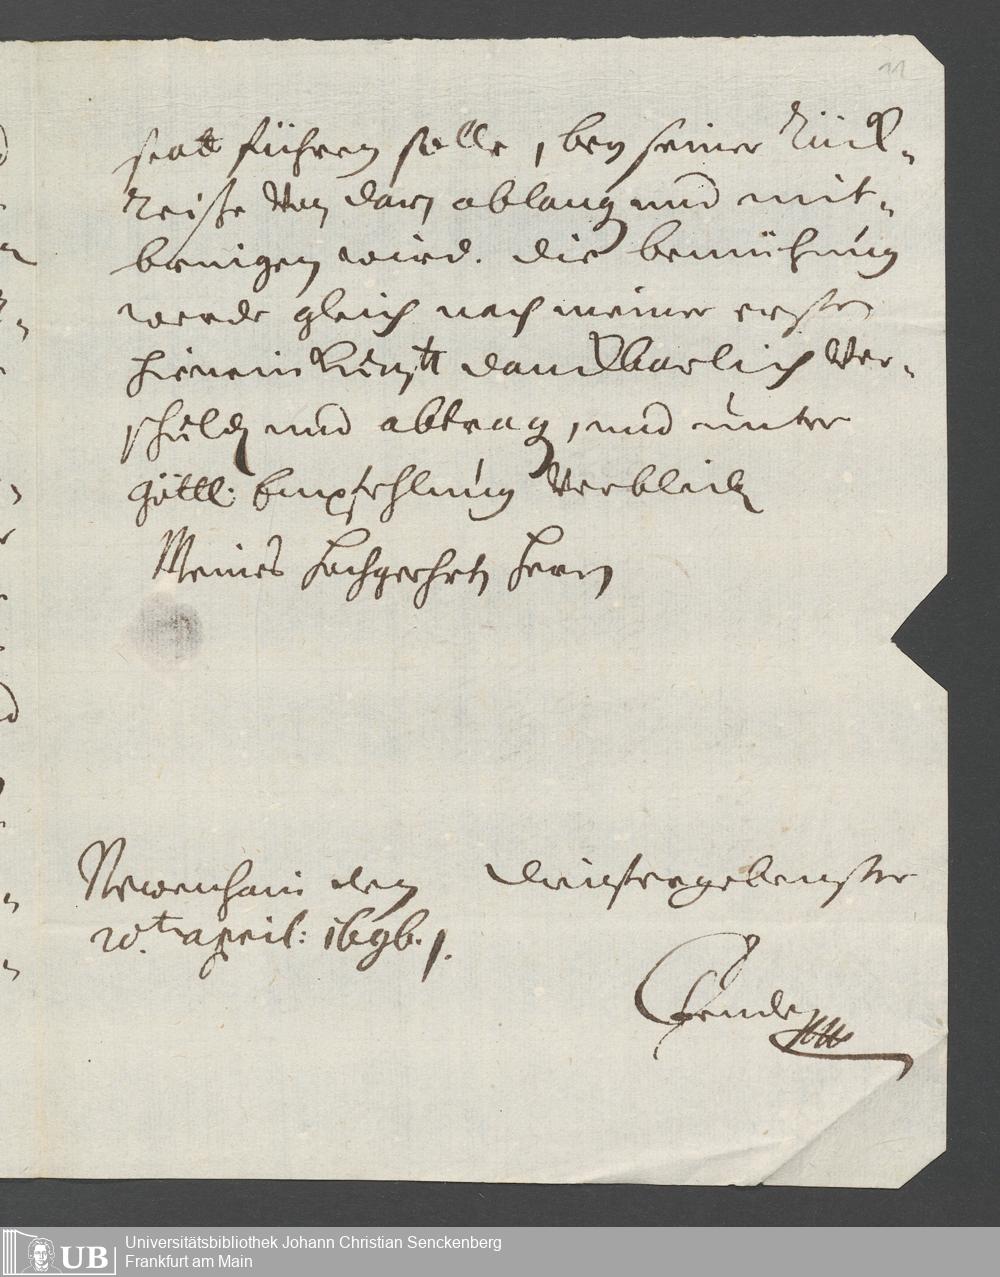 11
statt führen solle, bey seiner Rück-
Reiße Von darn ablang und mit-
bringen wird. die bemühung
werde gleich nach meiner ersten
hinein Kunfft danckbarlich Ver-
schuld und abtrag, und unter
göttl: Empfehlung Verbleib
Meines hochgeehrtn Herrn
Newenhain den dienstergebenster
20.t april: 1696.
UB
Universitätsbibliothek Johann Christian Senckenberg
Frankfurt am Main